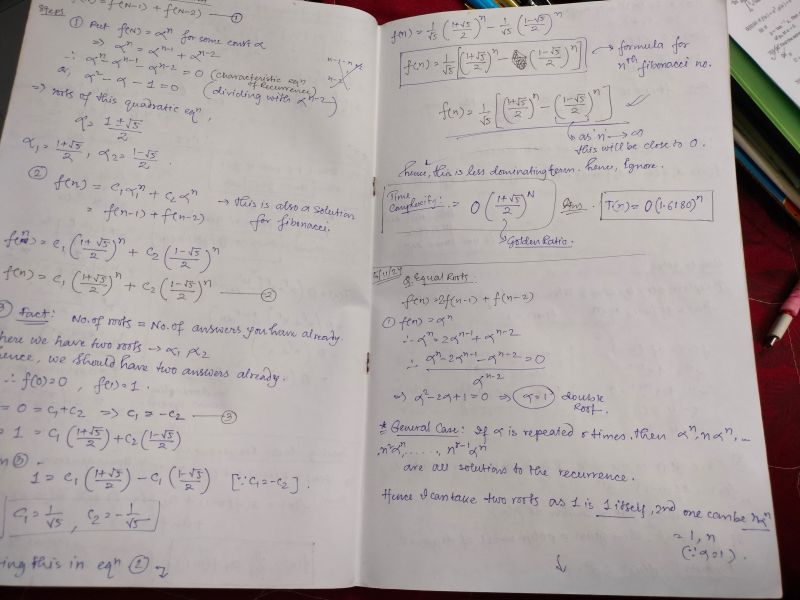 f(N-1) + f(N-2) — ①
Steps
① Put f(N) = αⁿ for some const α
⇒ αⁿ = αⁿ⁻¹ + αⁿ⁻²
∴ αⁿ - αⁿ⁻¹ - αⁿ⁻² = 0 (characteristic eqⁿ of Recurrence)
α² - α - 1 = 0 (dividing with αⁿ⁻²)
⇒ roots of this quadratic eqⁿ,
α = 1±√5/2
α₁ = 1+√5/2 , α₂ = 1-√5/2 .
② f(n) = c₁α₁ⁿ + c₂αⁿ → this is also a solution
= f(n-1) + f(n-2) for fibonacci.
= c₁ (1+√5/2)ⁿ + c₂ (1-√5/2)ⁿ
f(n) = c₁ (1+√5/2)ⁿ + c₂ (1-√5/2)ⁿ — ②
Fact: No. of roots = No. of answers you have already.
here we have two roots → α₁ α₂
hence, we should have two answers already.
∴ f(0)=0 , f(1)=1 .
= 0 = c₁+c₂ ⇒ c₁ = -c₂ — ③
= 1 = c₁ (1+√5/2) + c₂ (1-√5/2)
③
1 = c₁ (1+√5/2) - c₁ (1-√5/2) [∵ c₁=-c₂] .
c₁ = 1/√5 , c₂ = -1/√5
this in eqⁿ ②
f(n) = 1/√5 (1+√5/2)ⁿ - 1/√5 (1-√5/2)ⁿ
f(n) = 1/√5 [(1+√5/2)ⁿ - (1-√5/2)ⁿ] → formula for
nᵗʰ fibonacci no.
f(n) = 1/√5 [(1+√5/2)ⁿ - (1-√5/2)ⁿ] ✓
as n → ∞
this will be close to 0.
hence, this is less dominating term. hence, Ignore.
Time
Complexity: = O(1+√5/2)ᴺ Ans. T(n) = O(1.6180)ⁿ
→ Golden Ratio.
Q. Equal Roots.
f(n) = 2f(n-1) + f(n-2)
① f(n) = αⁿ
∴ αⁿ = 2αⁿ⁻¹ + αⁿ⁻²
∴ αⁿ - 2αⁿ⁻¹ - αⁿ⁺² = 0
αⁿ⁻²
⇒ α² - 2α + 1 = 0 ⇒ α = 1 double
Root.
* General Case: If α is repeated r times. then αⁿ, nαⁿ, ...
n²αⁿ, ......, nʳ⁻¹αⁿ
are all solutions to the recurrence.
Hence I can take two roots as 1 is 1 itself, 2nd one can be nαⁿ
= 1, n
(∵ α=1) .